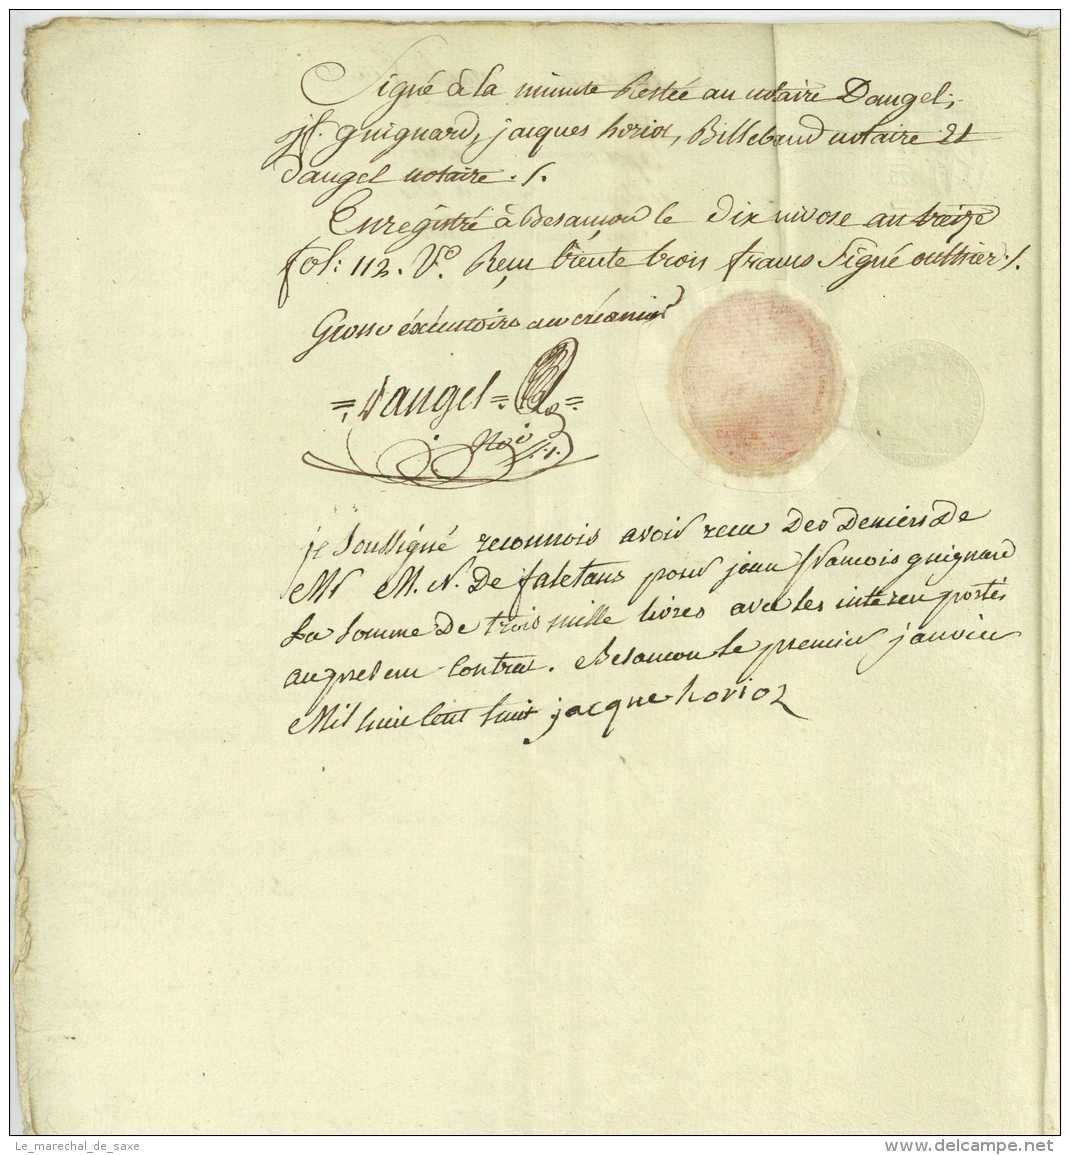 Signé à la minute Restée au notaire Daugel,
jf. guignard, jacques horiot, Billebaud notaire Et
daugel notaire ./.
Enregistré à Besançon le dix nivose an treize
fol: 112. Vo. Reçu trente trois francs Signé outhier ./.
Grosse éxécutoire au créancier
= daugel =
No.re
je Soussigné reconnois avoir recu des deniers De
Mr M. N. De faletans pour jean francois guignard
La Somme De trois mille livres avec les intéreu portés
au present Contrat. Besancon le premier janvier
Mil huit Cent huit jacque horioz
Le_marechal_de_saxe
delcampe.net